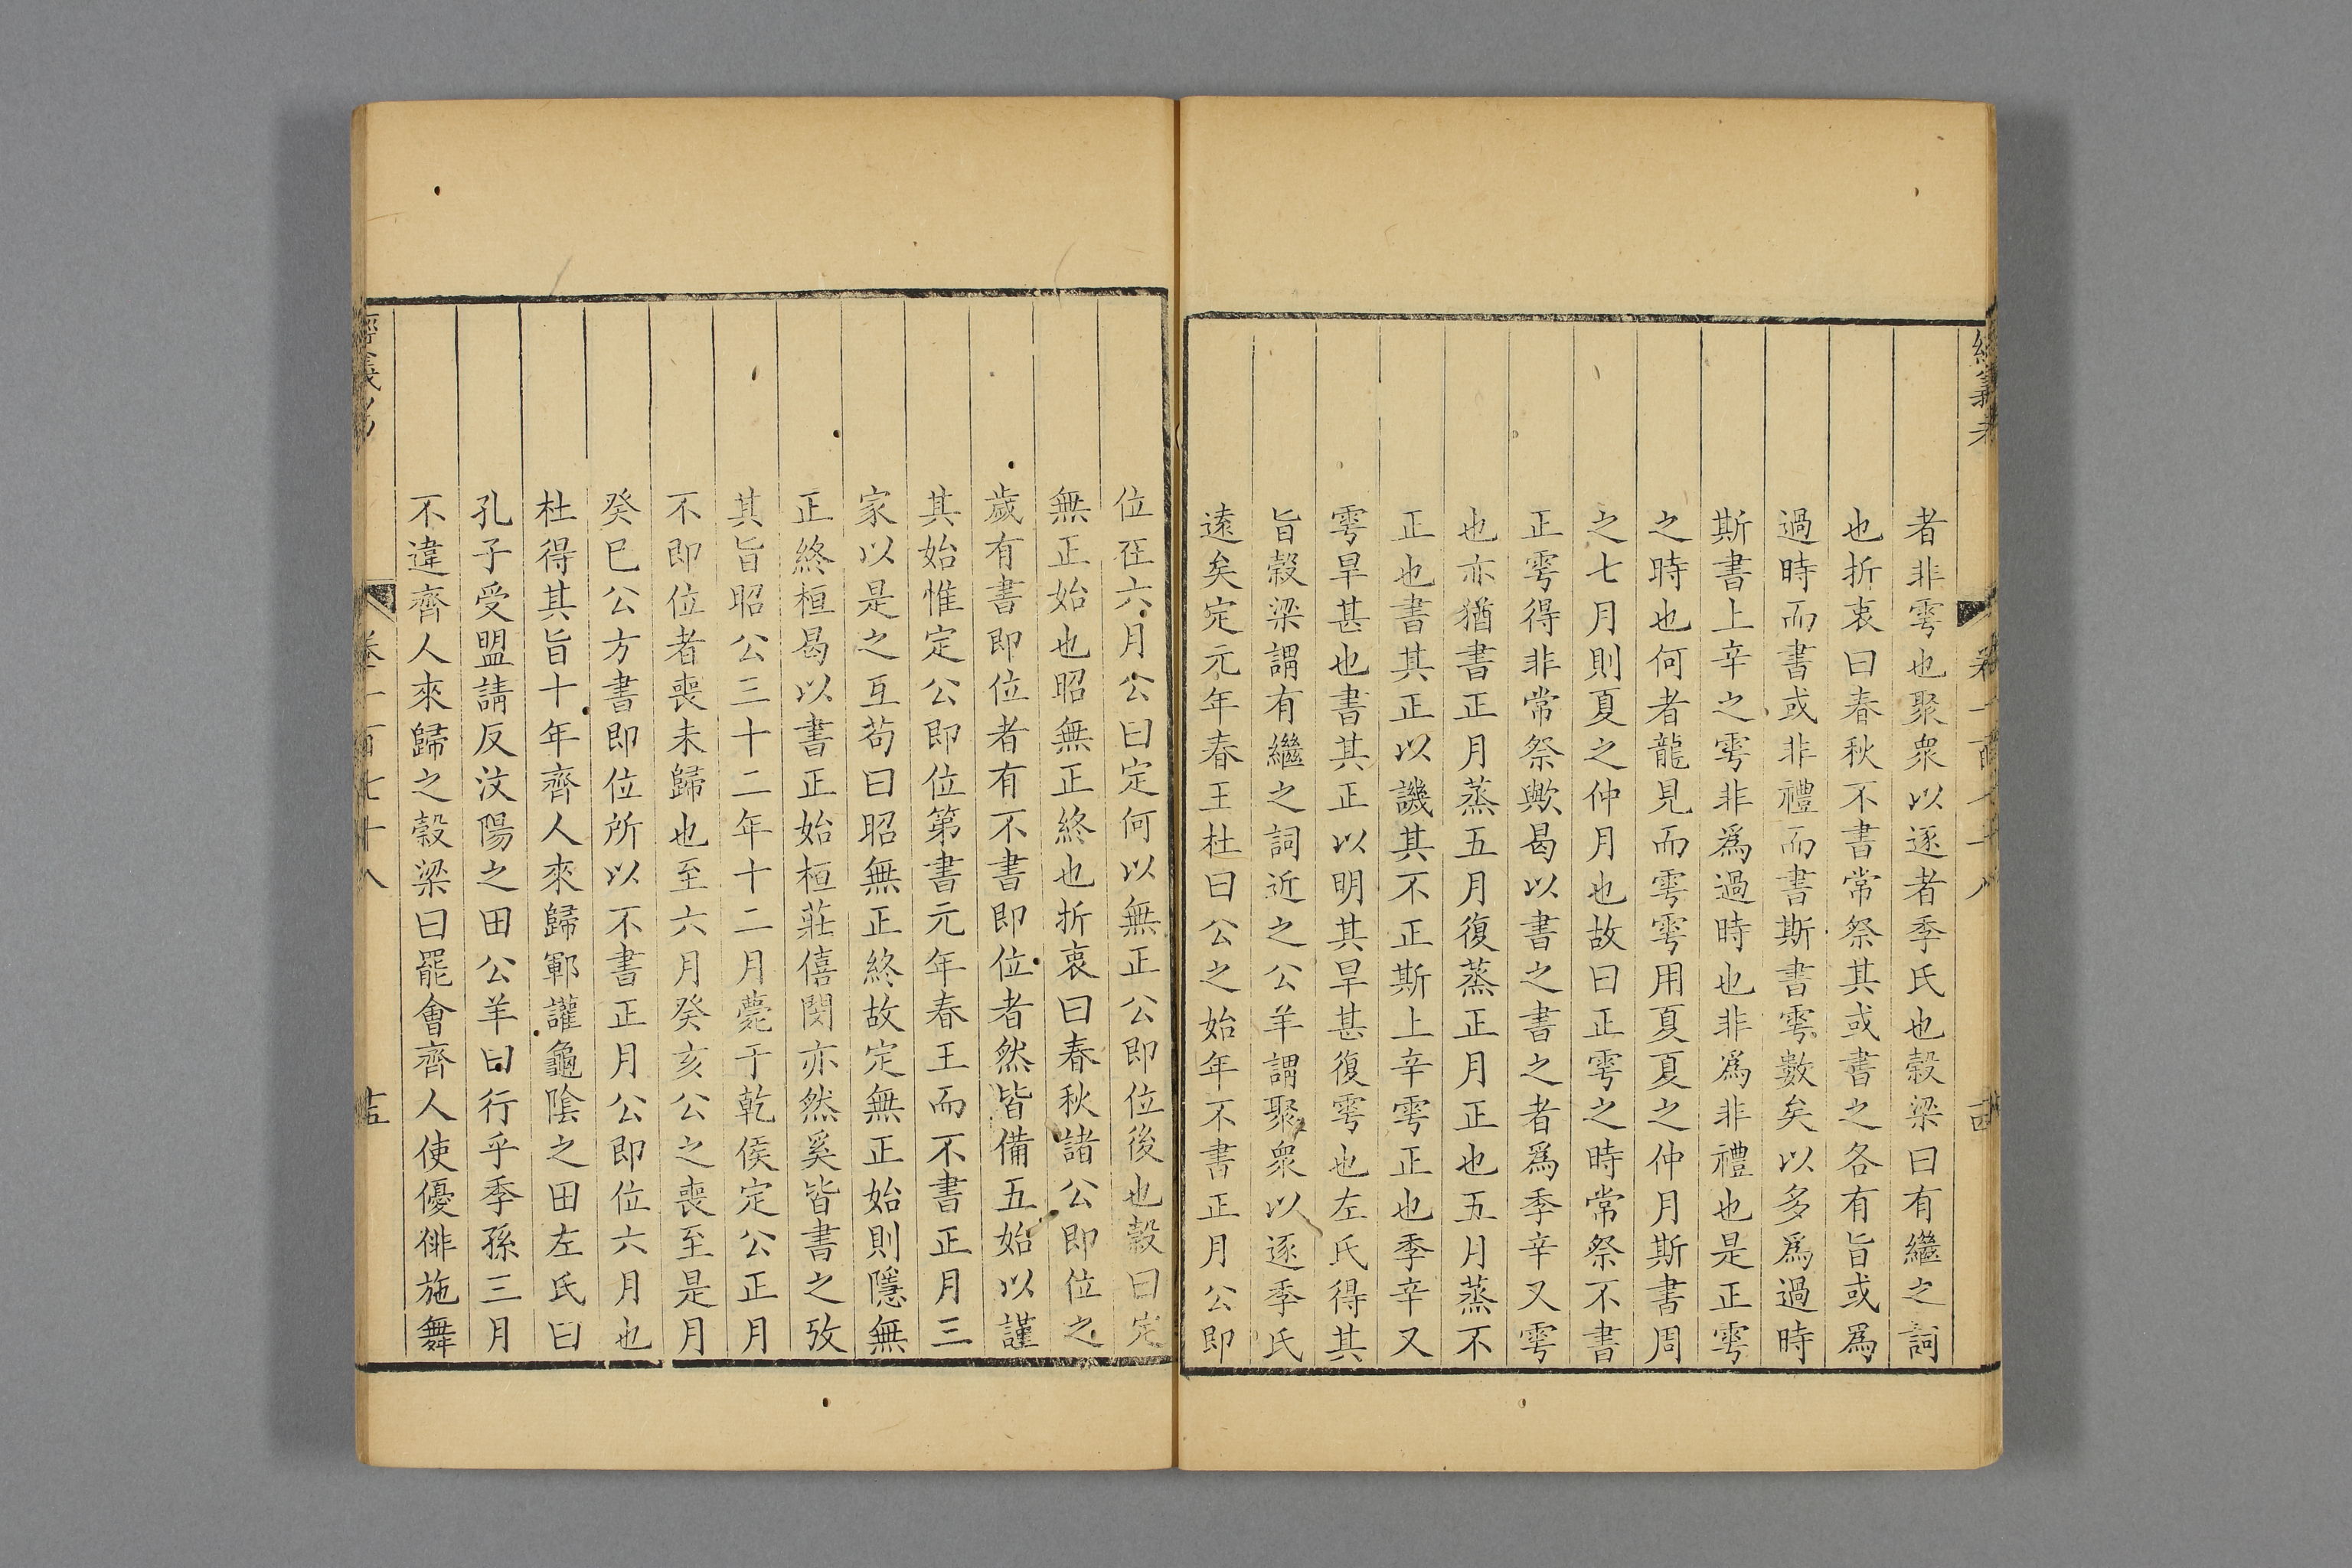 者非雩也聚衆以逐者季氏也穀梁曰有繼之詞
也折衷曰春秋不書常祭其或書之各有旨或爲
過時而書或非禮而書斯書雩數矣以多爲過時
斯書上辛之雩非爲過時也非爲非禮也是正雩
之時也何者龍見而雩雩用夏夏之仲月斯書周
之七月則夏之仲月也故曰正雩之時常祭不書
正雩得非常祭歟曷以書之書之者爲季辛又雩
也亦猶書正月蒸五月復蒸正月正也五月蒸不
正也書其正以譏其不正斯上辛雩正也季辛又
雩旱甚也書其正以明其旱甚復雩也左氏得其
旨穀梁謂有繼之詞近之公羊謂聚衆以逐季氏
遠矣定元年春王杜曰公之始年不書正月公即
位在六月公曰定何以無正公即位後也穀曰定
無正始也昭無正終也折衷曰春秋諸公即位之
歲有書即位者有不書即位者然皆備五始以謹
其始惟定公即位第書元年春王而不書正月三
家以是之互苟曰昭無正終故定無正始則隱無
正終桓曷以書正始桓莊僖閔亦然奚皆書之攷
其旨昭公三十二年十二月薨于乾侯定公正月
不即位者喪未歸也至六月癸亥公之喪至是月
癸巳公方書即位所以不書正月公即位六月也
杜得其旨十年齊人來歸鄆讙龜陰之田左氏曰
孔子受盟請反汶陽之田公羊曰行乎季孫三月
不違齊人來歸之穀梁曰罷會齊人使優俳施舞
卷一百七十八